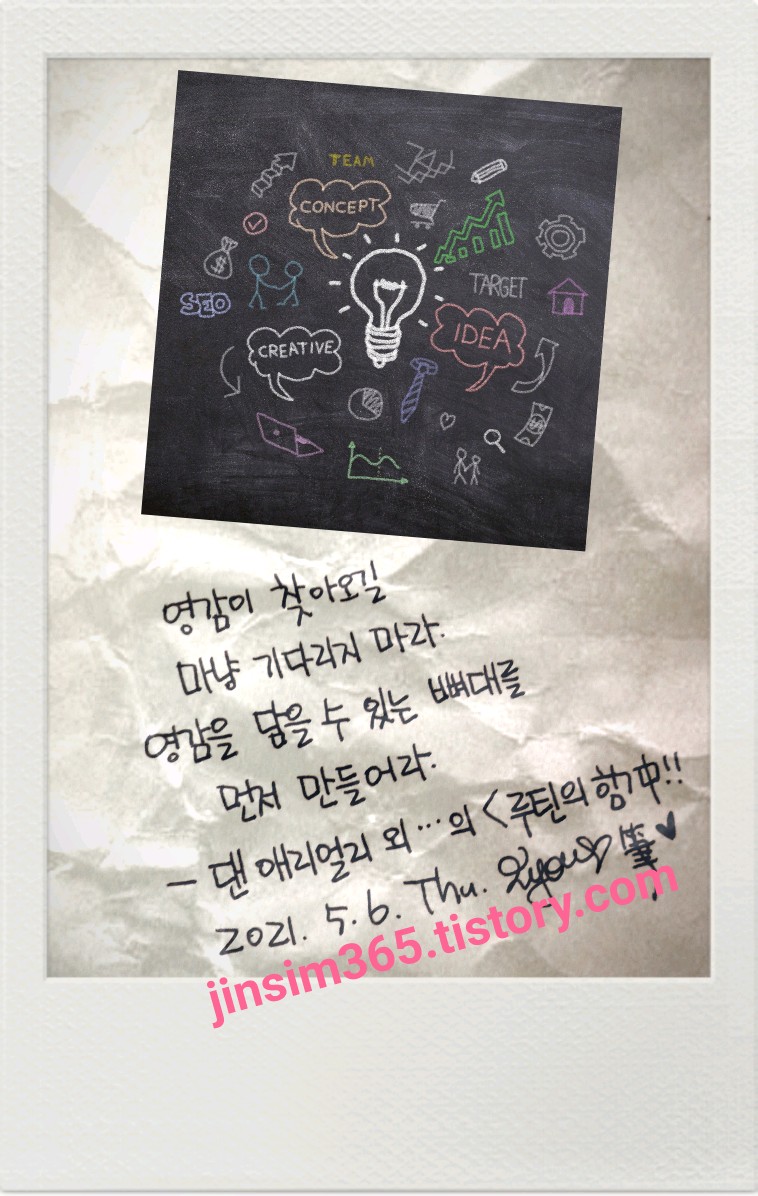 TEAM
CONCEPT
TARGET
SEO
IDEA
CREATIVE
영감이 찾아오길
마냥 기다리지 마라.
영감을 담을 수 있는 뼈대를
먼저 만들어라.
- 댄 애리얼리 외…의 <루틴의 힘>中!!
2021. 5. 6. Thu.
jinsim365.tistory.com